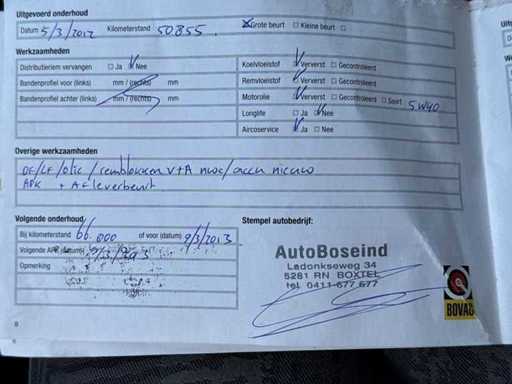 Uitgevoerd onderhoud
Datum 5/3/2012 Kilometerstand 50855. Grote beurt Kleine beurt
Werkzaamheden
Distributieriem vervangen Ja Nee
Bandenprofiel voor (links) mm / (rechts) mm
Bandenprofiel achter (links) mm / (rechts) mm
Koelvloeistof Ververst Gecontroleerd
Remvloeistof Ververst Gecontroleerd
Motorolie Ververst Gecontroleerd Soort 5W40
Longlife Ja Nee
Aircoservice Ja Nee
Overige werkzaamheden
OF/LF/olie/remblokken V+A nw/accu nieuw
APK + Afleverbeurt
Volgende onderhoud
Bij kilometerstand 66.000 of voor (datum) 9/3/2013
Volgende APK (datum)
Opmerking
Stempel autobedrijf:
AutoBoseind
Ladonkseweg 34
5281 RN BOXTEL
tel. 0411-677 677
BOVAG
8